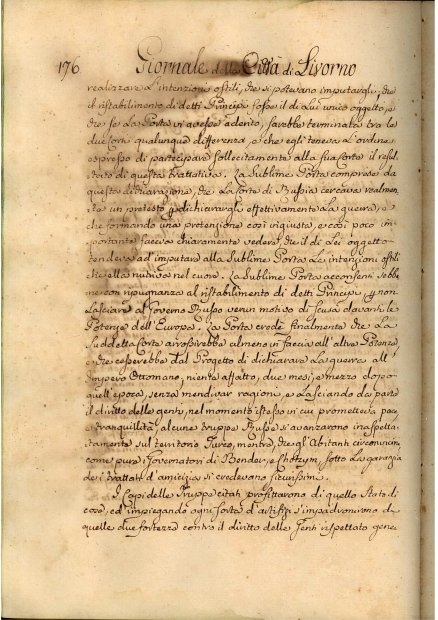 176 Giornale della Città di Livorno
realizzare l'intenzioni ostili, che si potevano imputargli, che
il ristabilimento di detti Principi fosse il di lui unico oggetto, e
che se la Porta vi avesse aderito, sarebbe terminata tra le
due Corti qualunque differenza, e che egli teneva l'ordine
espresso di partecipare sollecitamente alla sua Corte il resul-
tato di questa trattativa. La Sublime Porta comprese da
questa dichiarazione, che la Corte di Russia cercava realmen-
te un pretesto p dichiarargli effettivamente la guerra, e
che formando una pretenzione così ingiusta, e così poco im-
portante faceva chiaramente vedere, che il di lei oggetto
tendeva ad imputare alla Sublime Porta le intenzioni ostili
che ella nutriva nel cuore. La Sublime Porta acconsentì seb-
bene con ripugnanza al ristabilimento di detti Principi p non
lasciare al Governo Russo verun motivo di scusa davanti le
Potenze dell'Europa. La Porta crede finalmente che la
Suddetta Corte arrossirebbe almeno in faccia all'altre Potenze
e che cesserebbe dal Progetto di dichiarare la guerra all'
Impero Ottomano, niente affatto, due mesi, e mezzo dopo
quell'epoca, senza mendicar ragioni, e lasciando da parte
il diritto delle genti, nel momento istesso in cui prometteva pace,
e tranquillità, alcune truppe Russe si avanzarono inaspet-
tatamente sul territorio Turco, mentre, che gl'Abitanti circonvicini
come pure i Governatori di Bender, e Chotzym, sotto la garanzia
dei trattati d'amicizia si credevano sicurissimi.
I Capi delle Truppe citati profittarono di quello stato di
cose, ed impiegando ogni sorte d'artifizi s'impadronirono di
quelle due fortezze contro il diritto delle Genti rispettato gene-